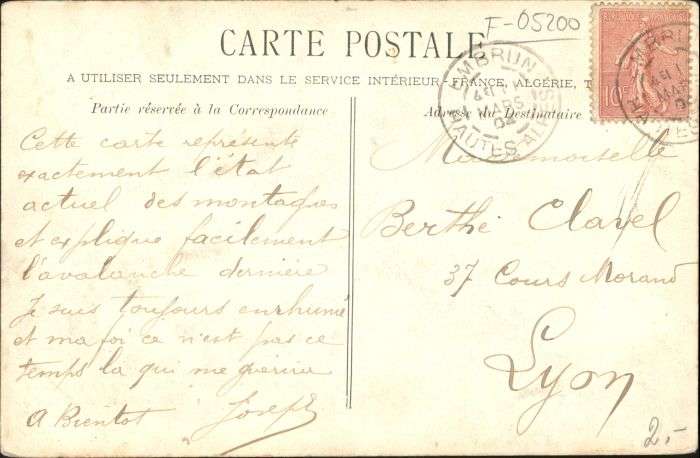 F-05200
CARTE POSTALE
A UTILISER SEULEMENT DANS LE SERVICE INTÉRIEUR, FRANCE, ALGÉRIE, T
Partie réservée à la Correspondance
Adresse du Destinataire
EMBRUN
MARS
04
HAUTES-ALPES
10
Cette carte représente
exactement l'état
actuel des montagnes
et explique facilement
l'avalanche dernière
Je suis toujours enrhumé
et ma foi ce n'est pas ce
temps la qui me guérira
A Bientot Joseph
Mademoiselle
Berthe Clavel
37 Cours Morand
Lyon
2.-